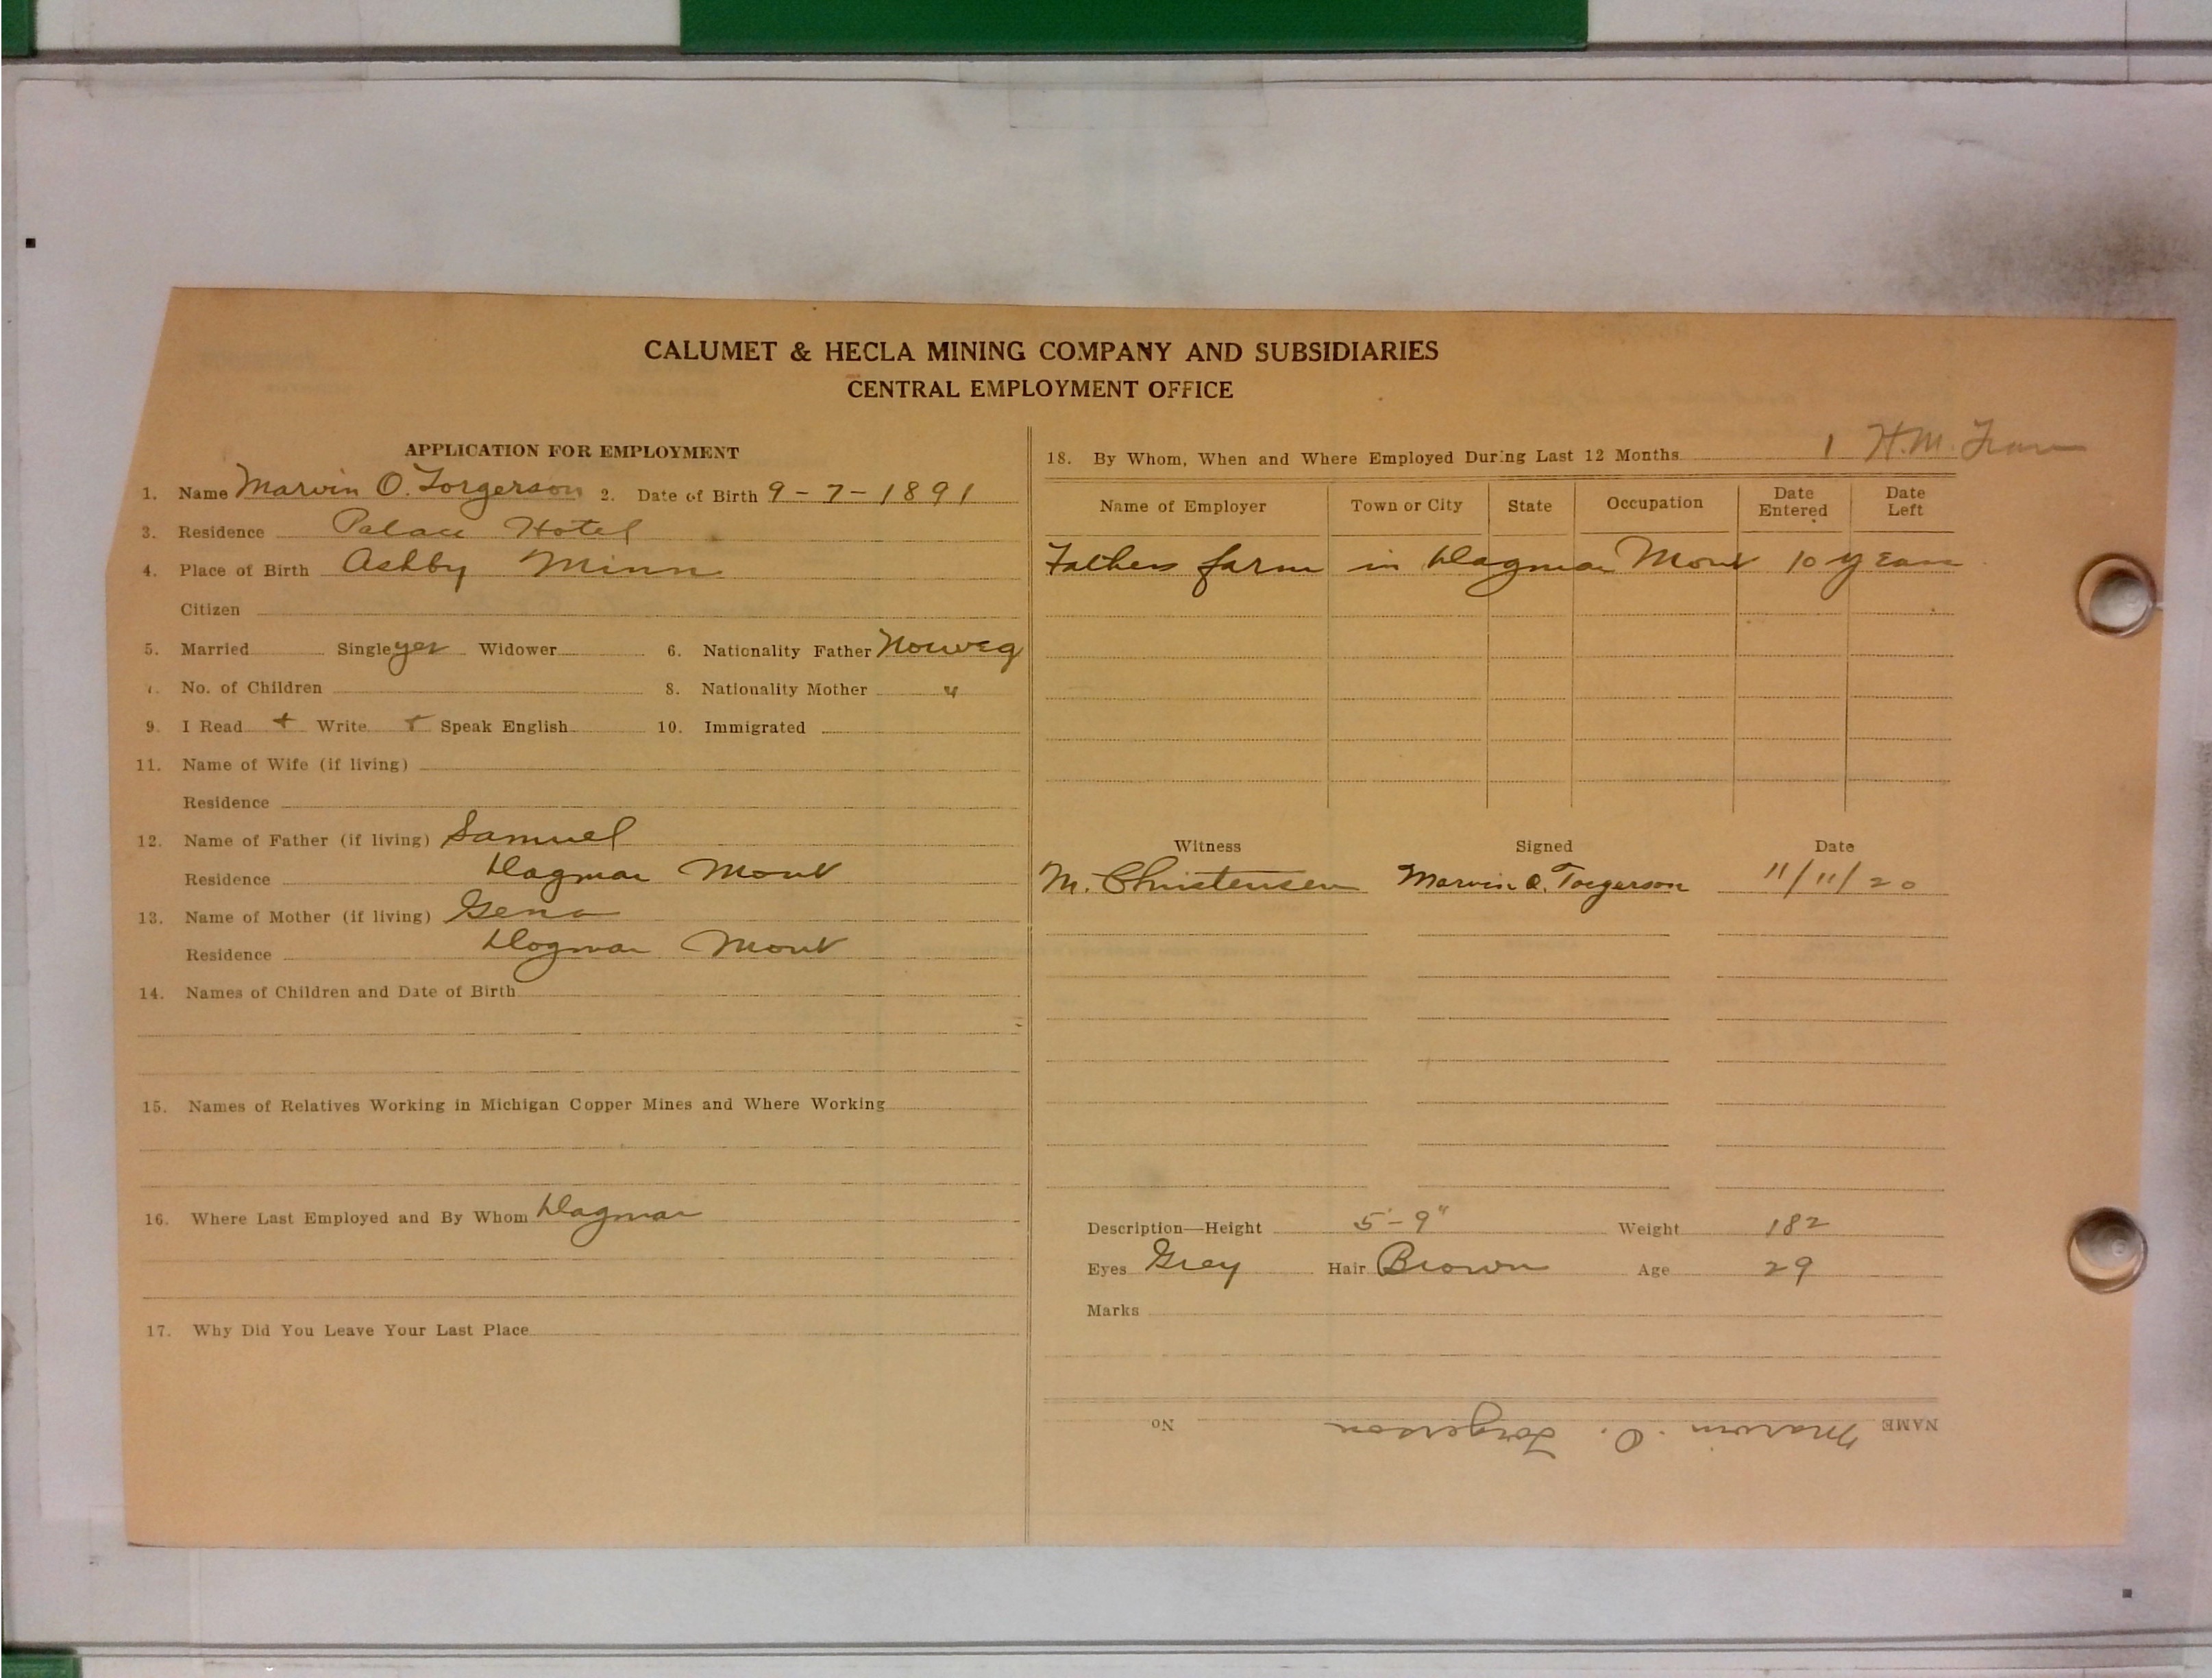 CALUMET & HECLA MINING COMPANY AND SUBSIDIARIES
CENTRAL EMPLOYMENT OFFICE
APPLICATION FOR EMPLOYMENT
1. Name Marvin O. Torgerson 2. Date of Birth 9-7-1891
3. Residence Palace Hotel
4. Place of Birth Ashby Minn
Citizen
5. Married Single yes Widower 6. Nationality Father Norweg
7. No. of Children 8. Nationality Mother "
9. I Read + Write + Speak English 10. Immigrated
11. Name of Wife (if living)
Residence
12. Name of Father (if living) Samuel
Residence Dagmar Mont
13. Name of Mother (if living) Gena
Residence Dagmar Mont
14. Names of Children and Date of Birth
15. Names of Relatives Working in Michigan Copper Mines and Where Working
16. Where Last Employed and By Whom Dagmar
17. Why Did You Leave Your Last Place
18. By Whom, When and Where Employed During Last 12 Months 1 H.M.
Name of Employer Town or City State Occupation Date Entered Date Left
Fathers farm in Dagmar Mont 10 years
Witness Signed Date
M. Christensen Marvin O. Torgerson 11/11/20
Description—Height 5'-9" Weight 182
Eyes Grey Hair Brown Age 29
Marks
NAME Marvin O. Torgerson No